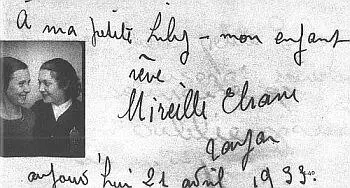 À ma petite Lily - mon enfant
rêvé
Mireille
aujourd'hui 21 avril 1933.